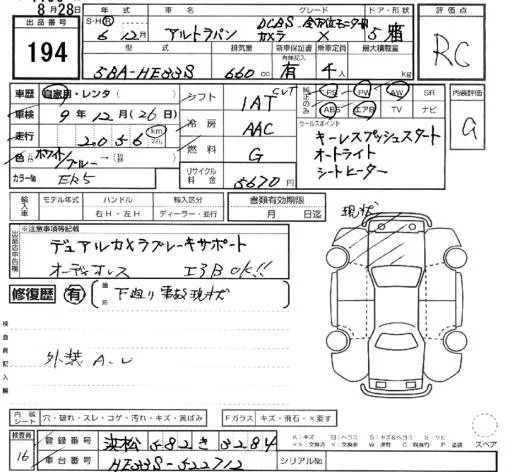 8月28日
出品番号
194
年式 車名 グレード ドア・形状
S・H・R 6年 12月 アルトラパン DCBS 全方位モニター用カメラ × 5 箱
型式 排気量 新車保証書 乗車定員 最大積載量
5BA-HE33S 660cc 有 4人 kg
評価点
RC
車歴 自家用・レンタ( )
車検 9年12月(26日)
走行 2056 km マイル
色 ホワイト/ブルー
カラーNo. ER5
シフト 1AT CVT
冷房 AAC
燃料 G
リサイクル料金 5670円
純正のみ PS PW AW SR
ABS エアB TV ナビ
セールスポイント
キーレスプッシュスタート
オートライト
シートヒーター
内装評価
G
輸入車 モデル年式 ハンドル 右H・左H 輸入区分 ディーラー・並行
書類有効期限
月 日迄
※注意事項等記載
出品店申告欄
デュアルカメラブレーキサポート
オーディオレス エアB OK!!
修復歴 有 箇所 下廻り事故現状
現状
検査員記入欄
外装 A-U
内装シート 穴・破れ・スレ・コゲ・汚れ・キズ・黄ばみ
Fガラス キズ・飛石・×要す
検査員
16
登録番号 浜松 582 き 3284
車台番号 HE33S-522712
シリアルNo.
スペア